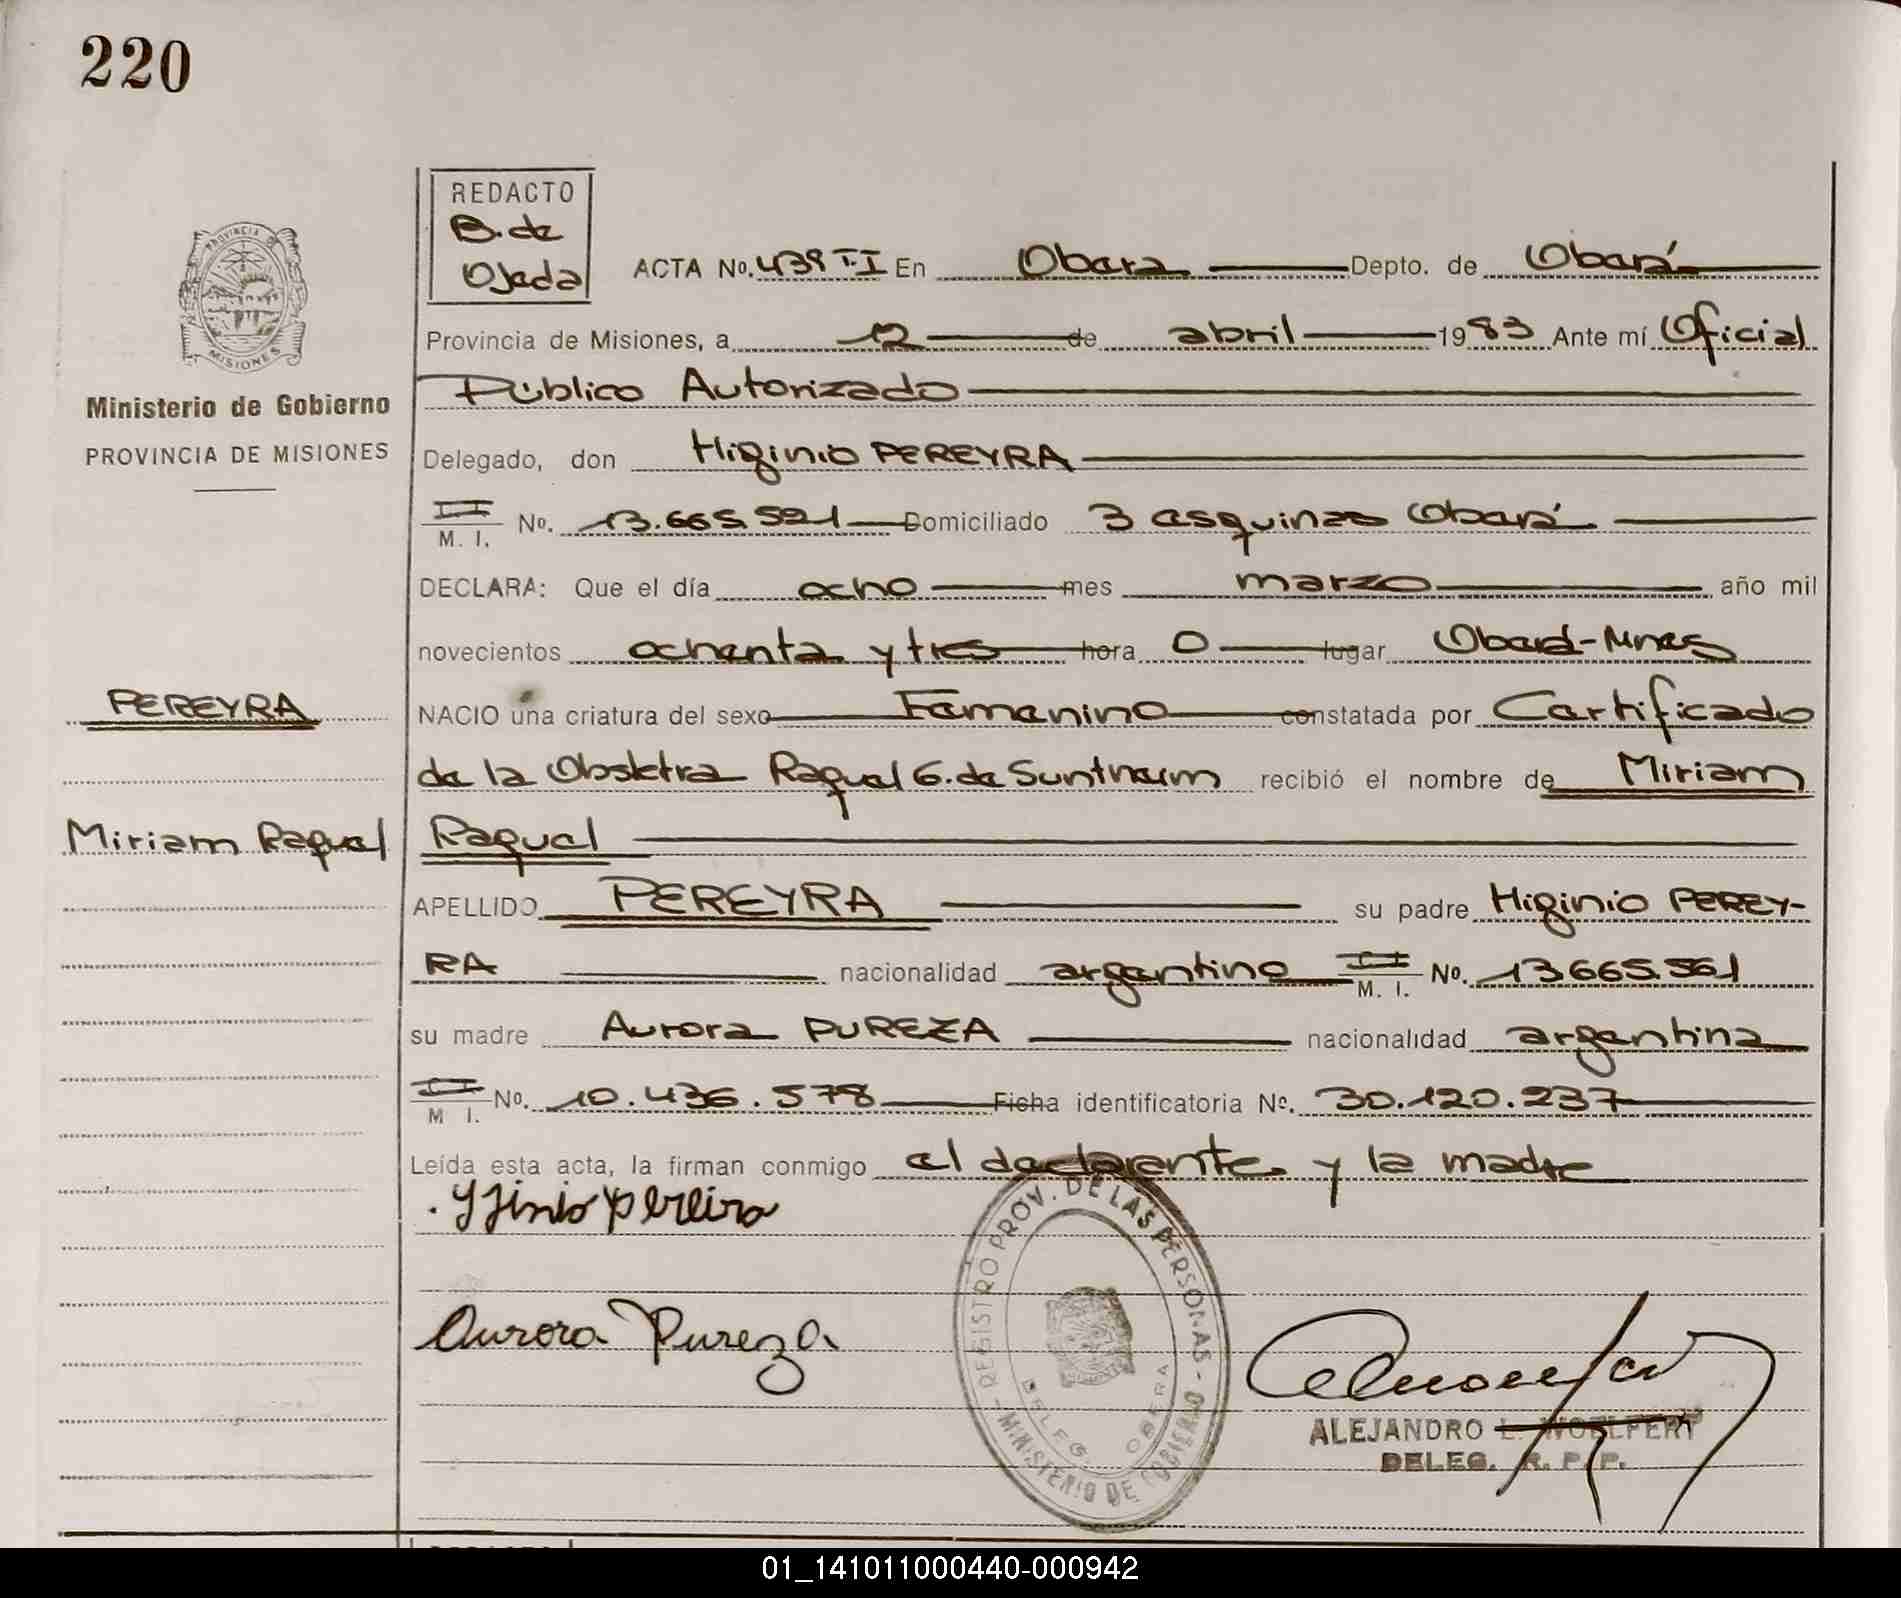 220
REDACTO
B. de
Ojeda
PROVINCIA DE
MISIONES
Ministerio de Gobierno
PROVINCIA DE MISIONES
ACTA No. 439 T-I En Obera Depto. de Oberá
Provincia de Misiones, a 12 de abril 1983 Ante mí Oficial
Público Autorizado
Delegado, don Higinio PEREYRA
M. I. No. 13.665.591 Domiciliado 3 esquinas Oberá
DECLARA: Que el día ocho mes marzo año mil
novecientos ochenta y tres hora 0 lugar Oberá-Mnes
PEREYRA
NACIO una criatura del sexo Femenino constatada por Certificado
de la Obstetra Raquel G. de recibió el nombre de Miriam
Miriam Raquel
Raquel
APELLIDO PEREYRA su padre Higinio PEREY-
RA nacionalidad argentino M. I. No. 13.665.561
su madre Aurora PUREZA nacionalidad argentina
M I. No. 10.436.578 Ficha identificatoria No. 30.120.237
Leída esta acta, la firman conmigo el declarante y la madre
Pereira
Aurora Pureza
REGISTRO PROV. DE LAS PERSONAS - MINISTERIO DE GOBIERNO
DELEG. OBERA
ALEJANDRO L. WOELFERT
DELEG. R. P. P.
01_141011000440-000942